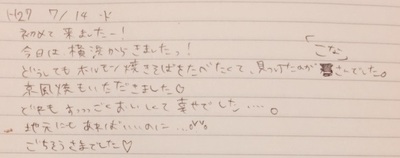 H29 7/14
初めて来ましたー!
今日は横浜からきましたっ!
どうしてもホルモン焼きそばをたべたくて、見つけたのが「こな」さんでした。
京風焼もいただきました♡
どれもすっっごくおいしくて幸せでした….。
地元にもあればいいのに…
ごちそうさまでした♡